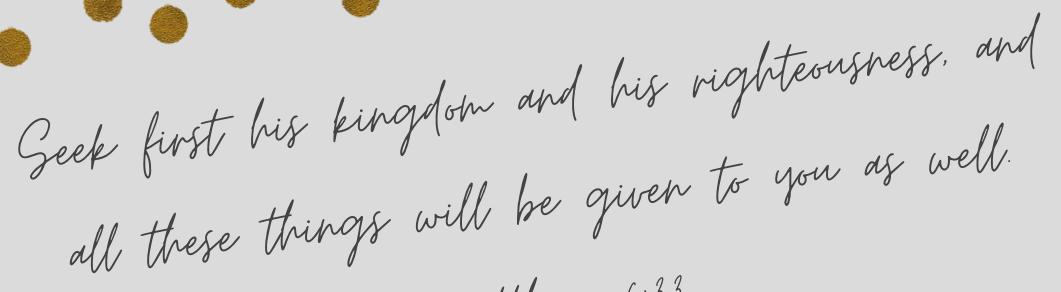 Seek first his kingdom and his righteousness, and
all these things will be given to you as well.
6:33